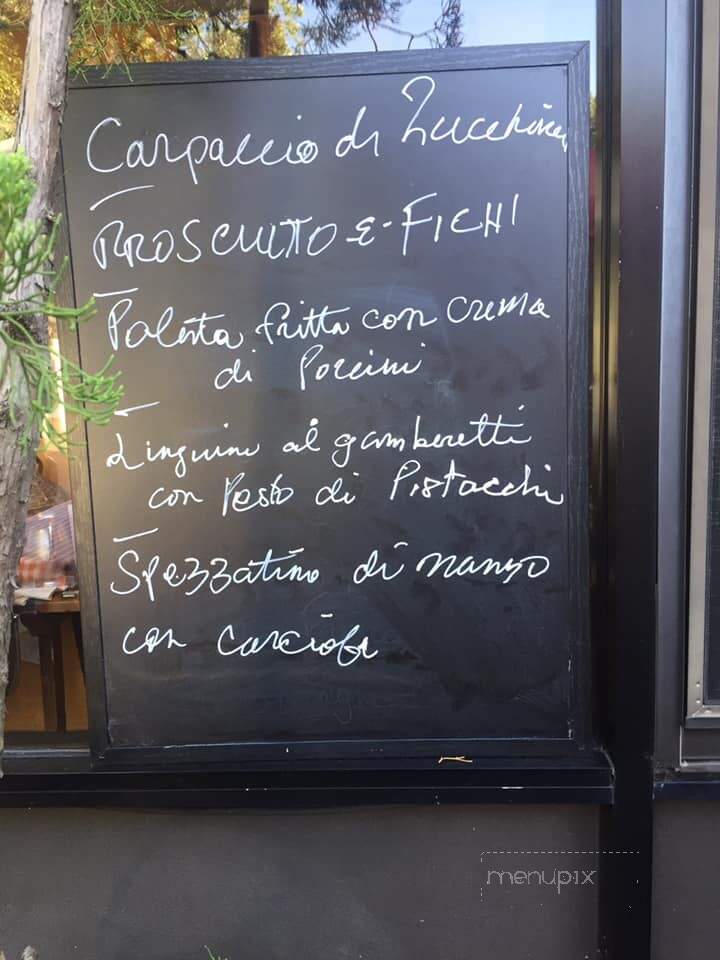 Carpaccio di Zucchine
PROSCIUTTO E FICHI
Polenta fritta con crema
di Porcini
Linguini al gamberetti
con Pesto di Pistacchi
Spezzatino di manzo
con carciofi
menupix